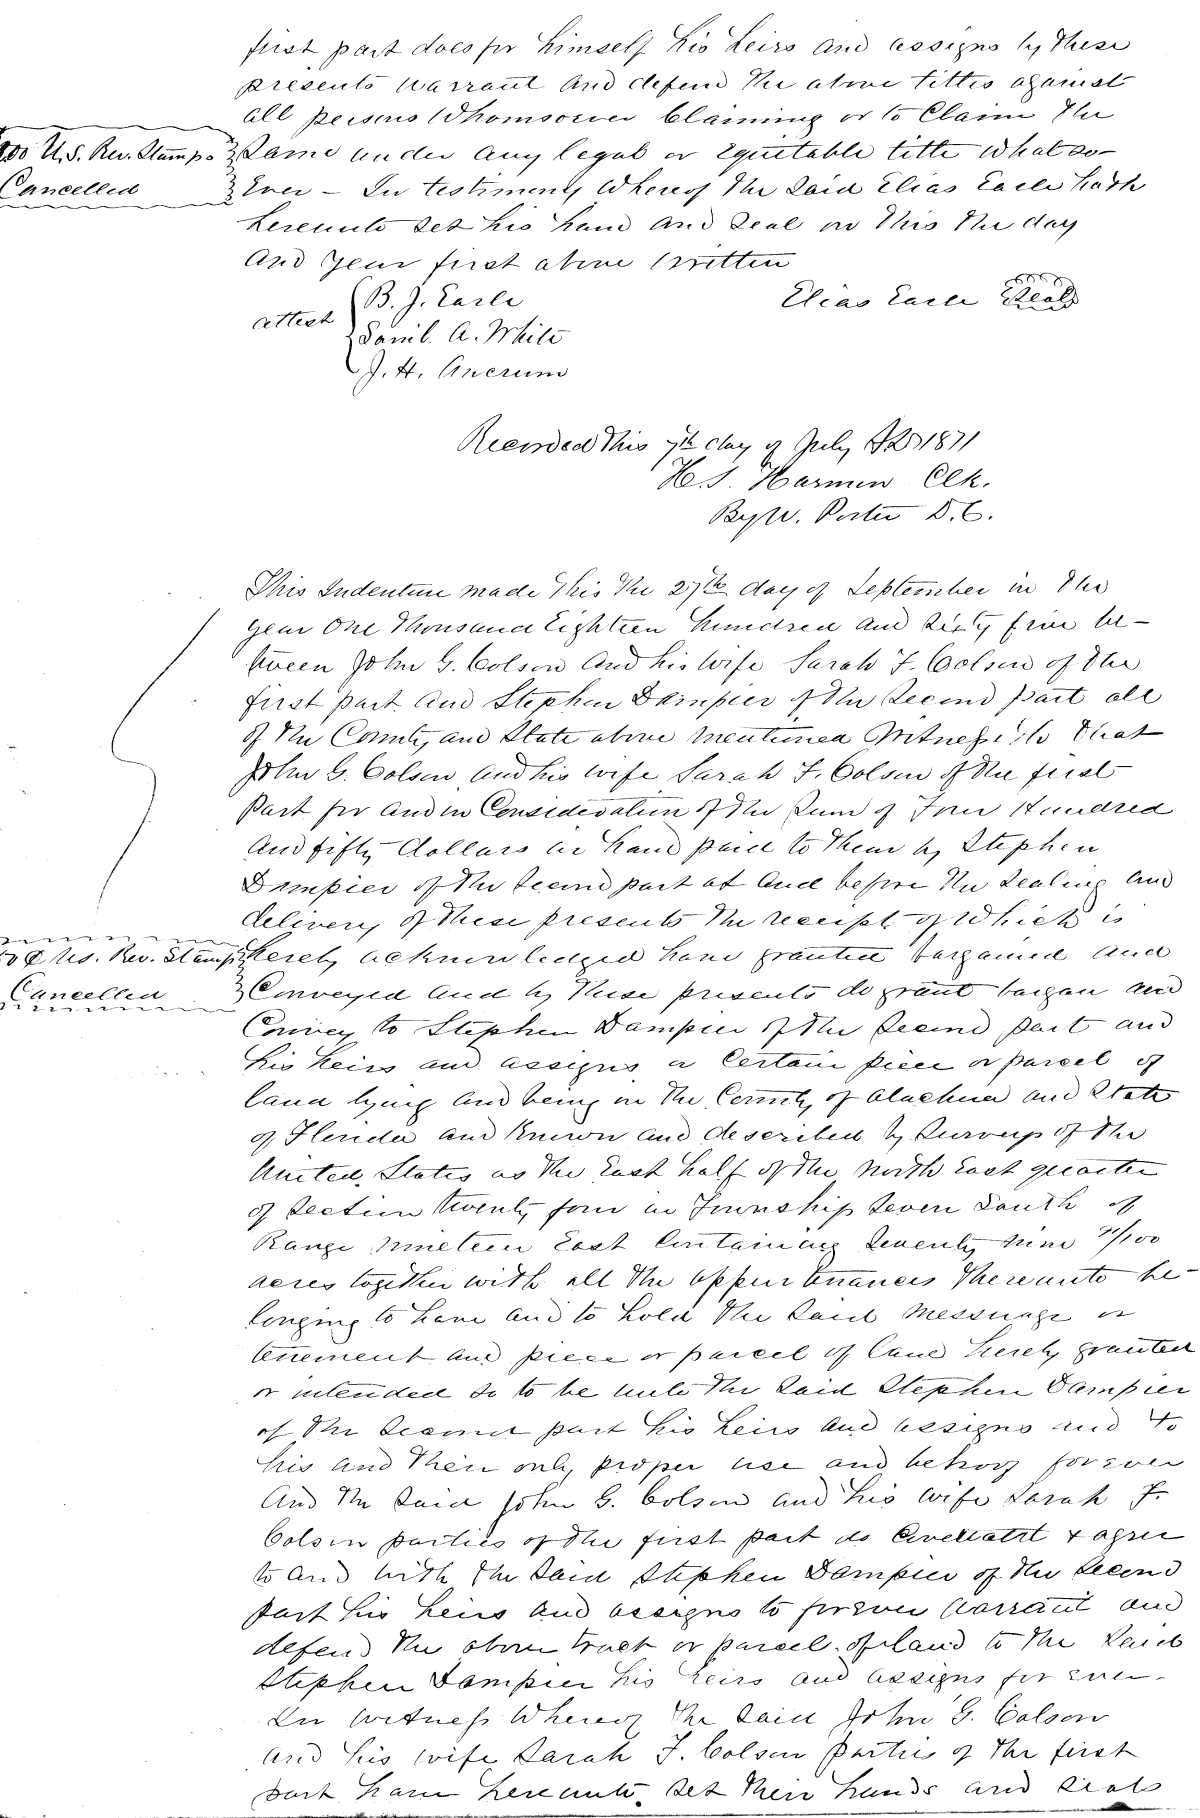 first part does for himself his heirs and assigns by these
presents warrant and defend the above titles against
all persons Whomsoever Claiming or to Claim the
.00 U.S. Rev. Stamps Same under any legal or Equitable title whatso-
Cancelled Ever - In testimony Whereof the Said Elias Earle hath
hereunto set his hand and Seal on this the day
and year first above written
attest B. J. Earle
Elias Earle Seal
Saml. A. White
J. H. Ancrum
Recorded this 7th day of July AD 1871
H. S. Harmon Clk.
By W. Porter D.C.
This Indenture made this the 27th day of September in the
year One Thousand Eighteen hundred and Sixty five be-
tween John G. Colson and his wife Sarah F. Colson of the
first part and Stephen Dampier of the Second part all
of the County and State above mentioned Witnesseth that
John G. Colson and his wife Sarah F. Colson of the first
Part for and in Consideration of the Sum of Four Hundred
and fifty dollars in hand paid to them by Stephen
Dampier of the Second part at and before the Sealing and
delivery of these presents the receipt of Which is
50 ¢ U.S. Rev. Stamps hereby acknowledged have granted bargained and
Cancelled Conveyed and by these presents do grant bargan and
Convey to Stephen Dampier of the Second part and
his heirs and assigns a Certain piece or parcel of
land lying and being in the County of Alachua and State
of Florida and Known and described by Surveys of the
United States as the East half of the North East quarter
of Section twenty four in Township Seven South of
Range nineteen East Containing Seventy nine /100
acres together with all the appurtenances thereunto be-
longing to have and to hold the Said Messuage or
tenement and piece or parcel of land hereby granted
or intended so to be unto the Said Stephen Dampier
of the Second part his heirs and assigns and to
his and their only proper use and behoof forever
And the Said John G. Colson and his wife Sarah F.
Colson parties of the first part do + agree
to and with the Said Stephen Dampier of the Second
part his heirs and assigns to forever Warrant and
defend the above tract or parcel of land to the Said
Stephen Dampier his heirs and assigns for ever.
In witness Whereof the Said John G. Colson
and his wife Sarah F. Colson parties of the first
part have hereunto set their hands and seals